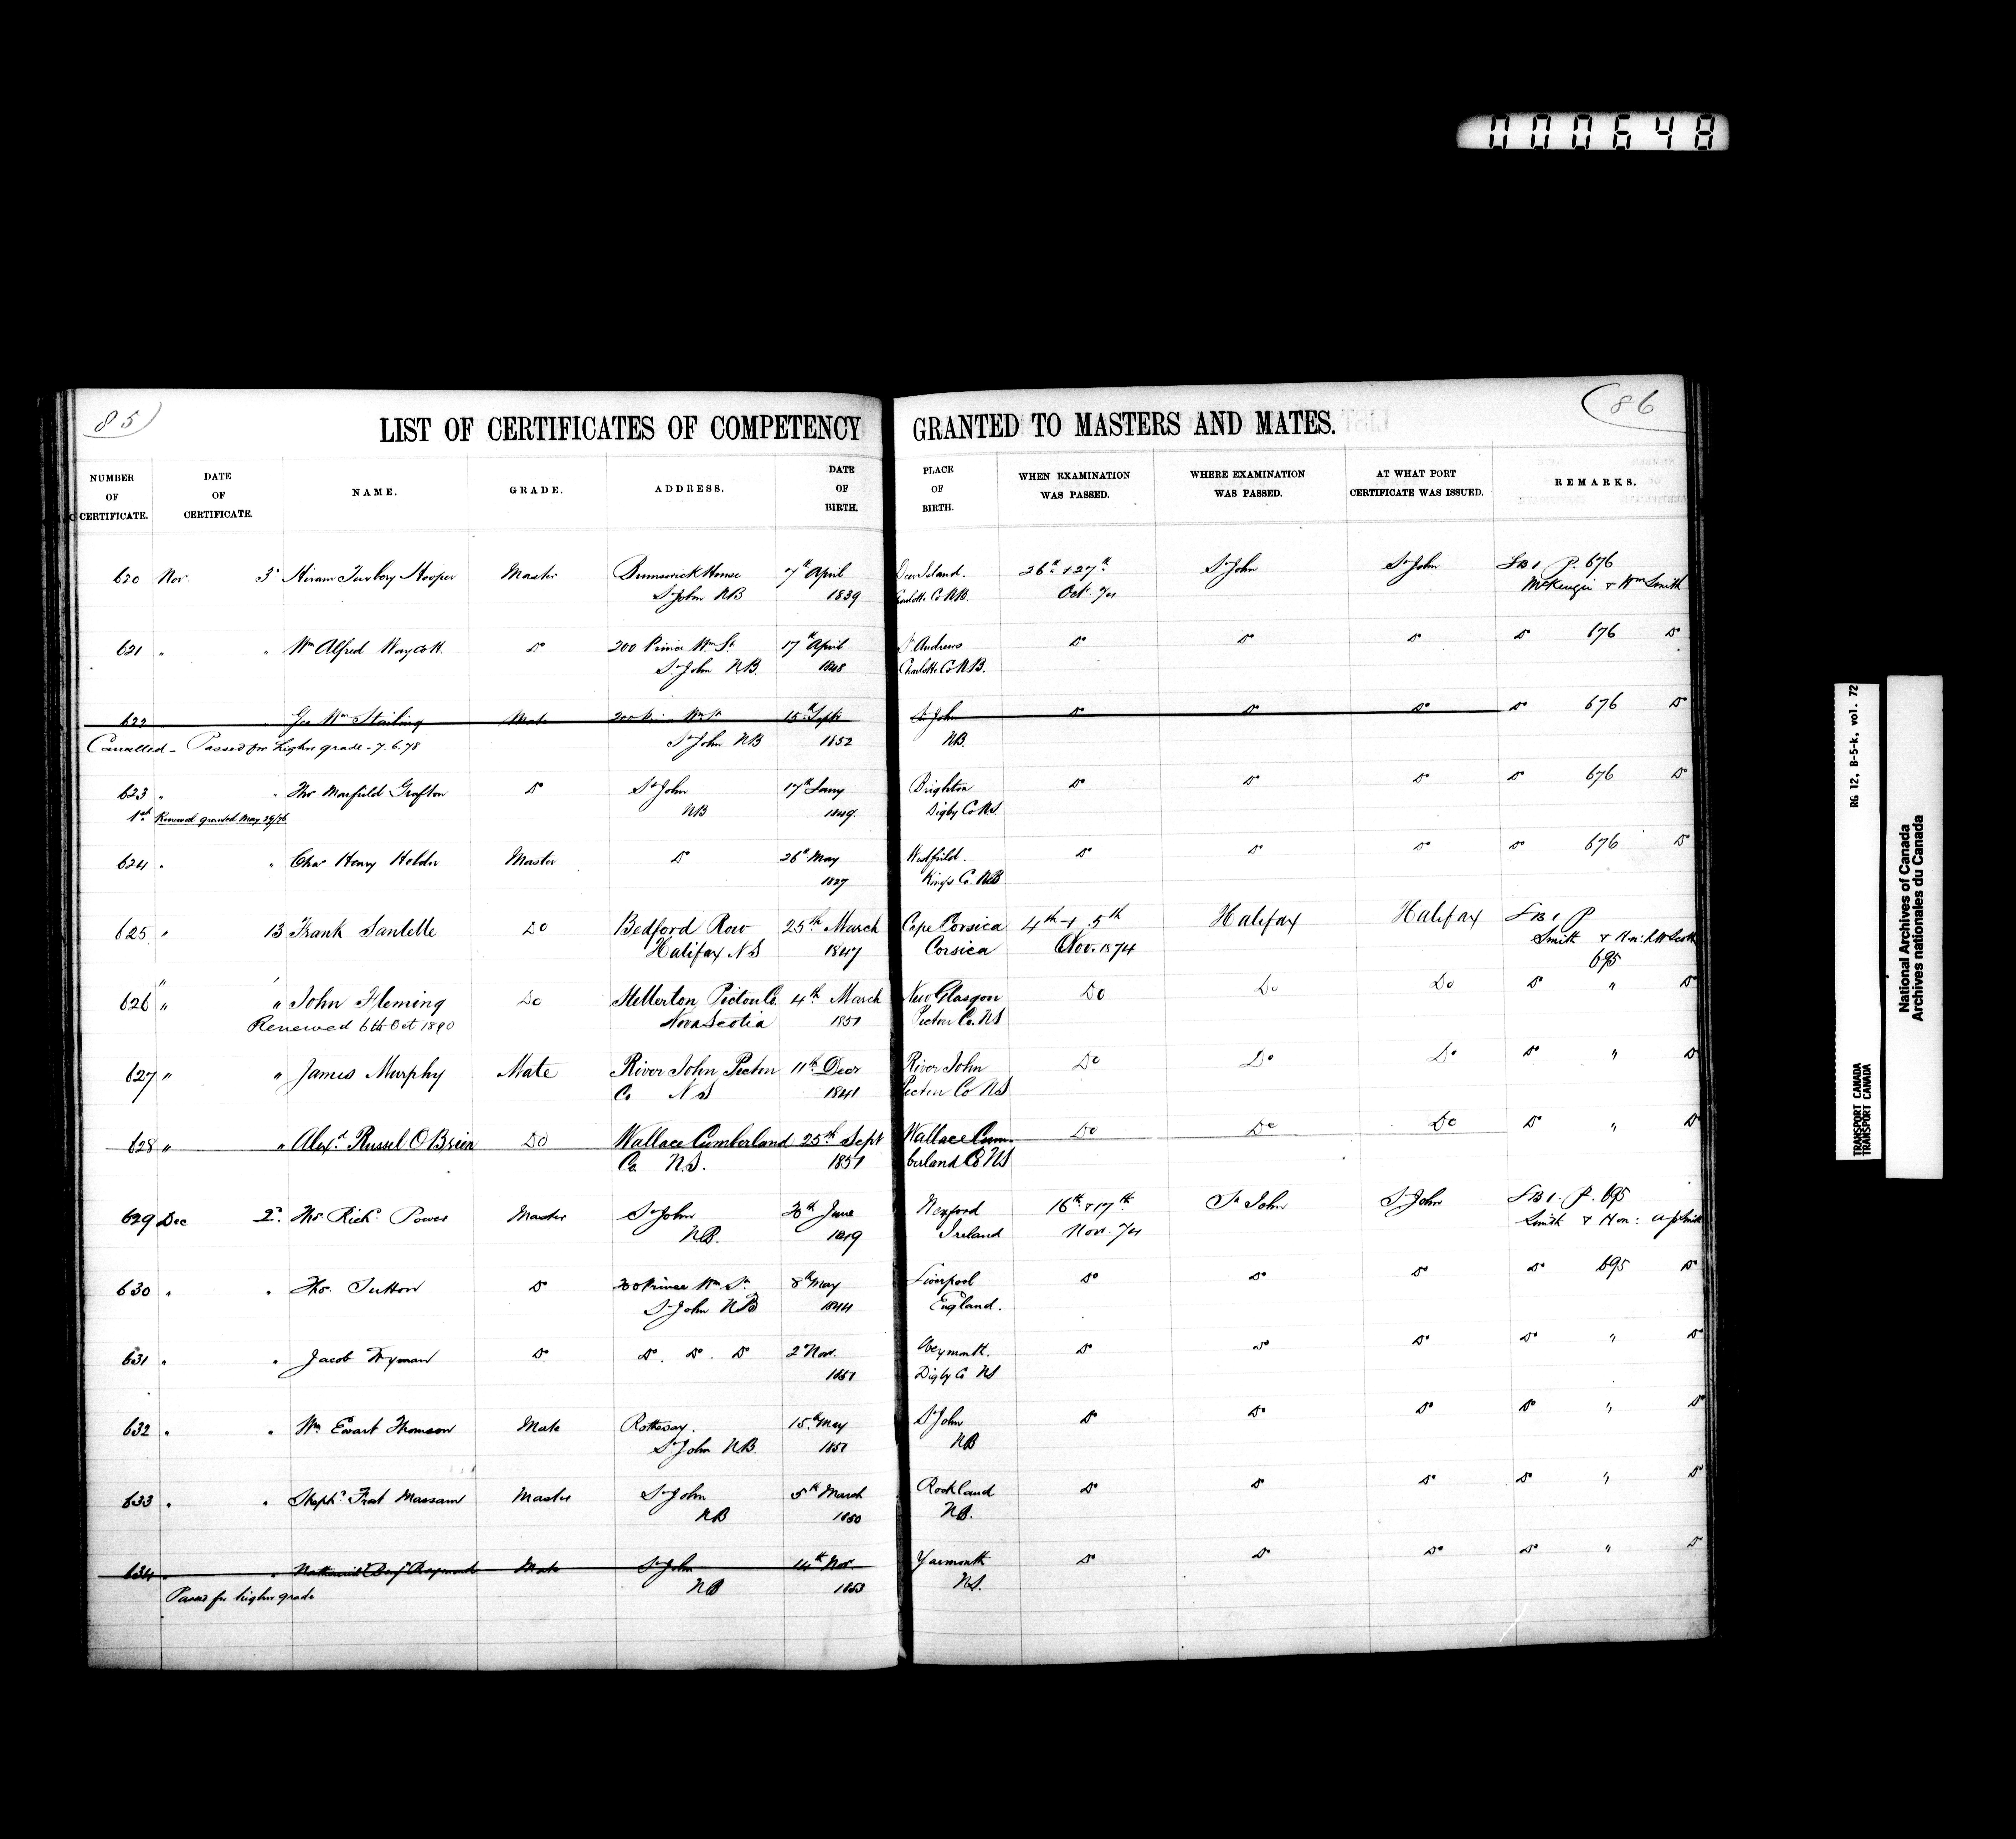 000648
85
86
LIST OF CERTIFICATES OF COMPETENCY GRANTED TO MASTERS AND MATES.
NUMBER OF CERTIFICATE. DATE OF CERTIFICATE. NAME. GRADE. ADDRESS. DATE OF BIRTH. PLACE OF BIRTH. WHEN EXAMINATION WAS PASSED. WHERE EXAMINATION WAS PASSED. AT WHAT PORT CERTIFICATE WAS ISSUED. REMARKS.
620 Nov 3 Hiram Hooper Master Brunswick House 7th April Deer Island. 26th + 27th St John St John LB 1 P. 676
St John NB 1839 Charlotte Co NB. Oct /74 McKenzie + Wm Smith
621 " " Wm Alfred Do 200 Prince Wm St 17th April St Andrews Do Do Do Do 676 Do
St John NB. 1848 Charlotte Co NB.
622 " Geo Wm Mate 200 Prin Wm St 15th Sept St John Do Do Do Do 676 Do
Cancelled - Passed for higher grade - 7.6.78 St John NB 1852 NB.
623 " " Thos Grafton Do St John 17th Jany Brighton Do Do Do Do 676 Do
1st Renewal granted May 29/76 NB 1849. Digby Co NS.
624 " " Chas Henry Holder Master Do 26th May Westfield. Do Do Do Do 676 Do
1827 Kings Co. NB
625 " 13 Frank Santelle Do Bedford Row 25th March Cape Corsica 4th + 5th Halifax Halifax LB 1 P
Halifax NS 1847 Corsica Nov. 1874 Smith + Hon: RW Scott
695
626 " " John Fleming Do Stellerton Pictou Co. 4th March New Glasgow Do Do Do Do " Do
Renewed 6th Oct 1890 Nova Scotia 1851 Pictou Co. NS
627 " " James Murphy Mate River John Pictou 11th Decr River John Do Do Do Do " Do
Co NS 1841 Pictou Co NS
628 " " Alexr Russel O'Brien Do Wallace Cumberland 25th Sept Wallace Cum- Do Do Do Do " Do
Co. N.S. 1851 berland Co NS
629 Dec 2 Thos Richd Power Master St John June Wexford 16th + 17th St John St John LB 1. P. 695
NB. 1849 Ireland Nov. /74 Smith + Hon: A J Smith
630 " " Thos. Sutton Do 200 Prince Wm St. 8th May Liverpool Do Do Do Do 695 Do
St John NB 1844 England.
631 " " Jacob Wyman Do Do. Do. Do 2 Nov. Weymouth. Do Do Do Do " Do
1851 Digby Co NS
632 " " Wm Ewart Thomson Mate Rothesay. 15th May St John Do Do Do Do " Do
St John NB. 1851 NB
633 " " Stephn Massam Master St John 5th March Rockland Do Do Do Do " Do
NB 1850 NB.
634 " " Nathaniel Benj Raymond Mate St John 14th Nov Yarmouth Do Do Do Do " Do
Passed for higher grade NB 1853 NS.
RG 12, B-5-k, vol. 72
TRANSPORT CANADA
TRANSPORT CANADA
National Archives of Canada
Archives nationales du Canada